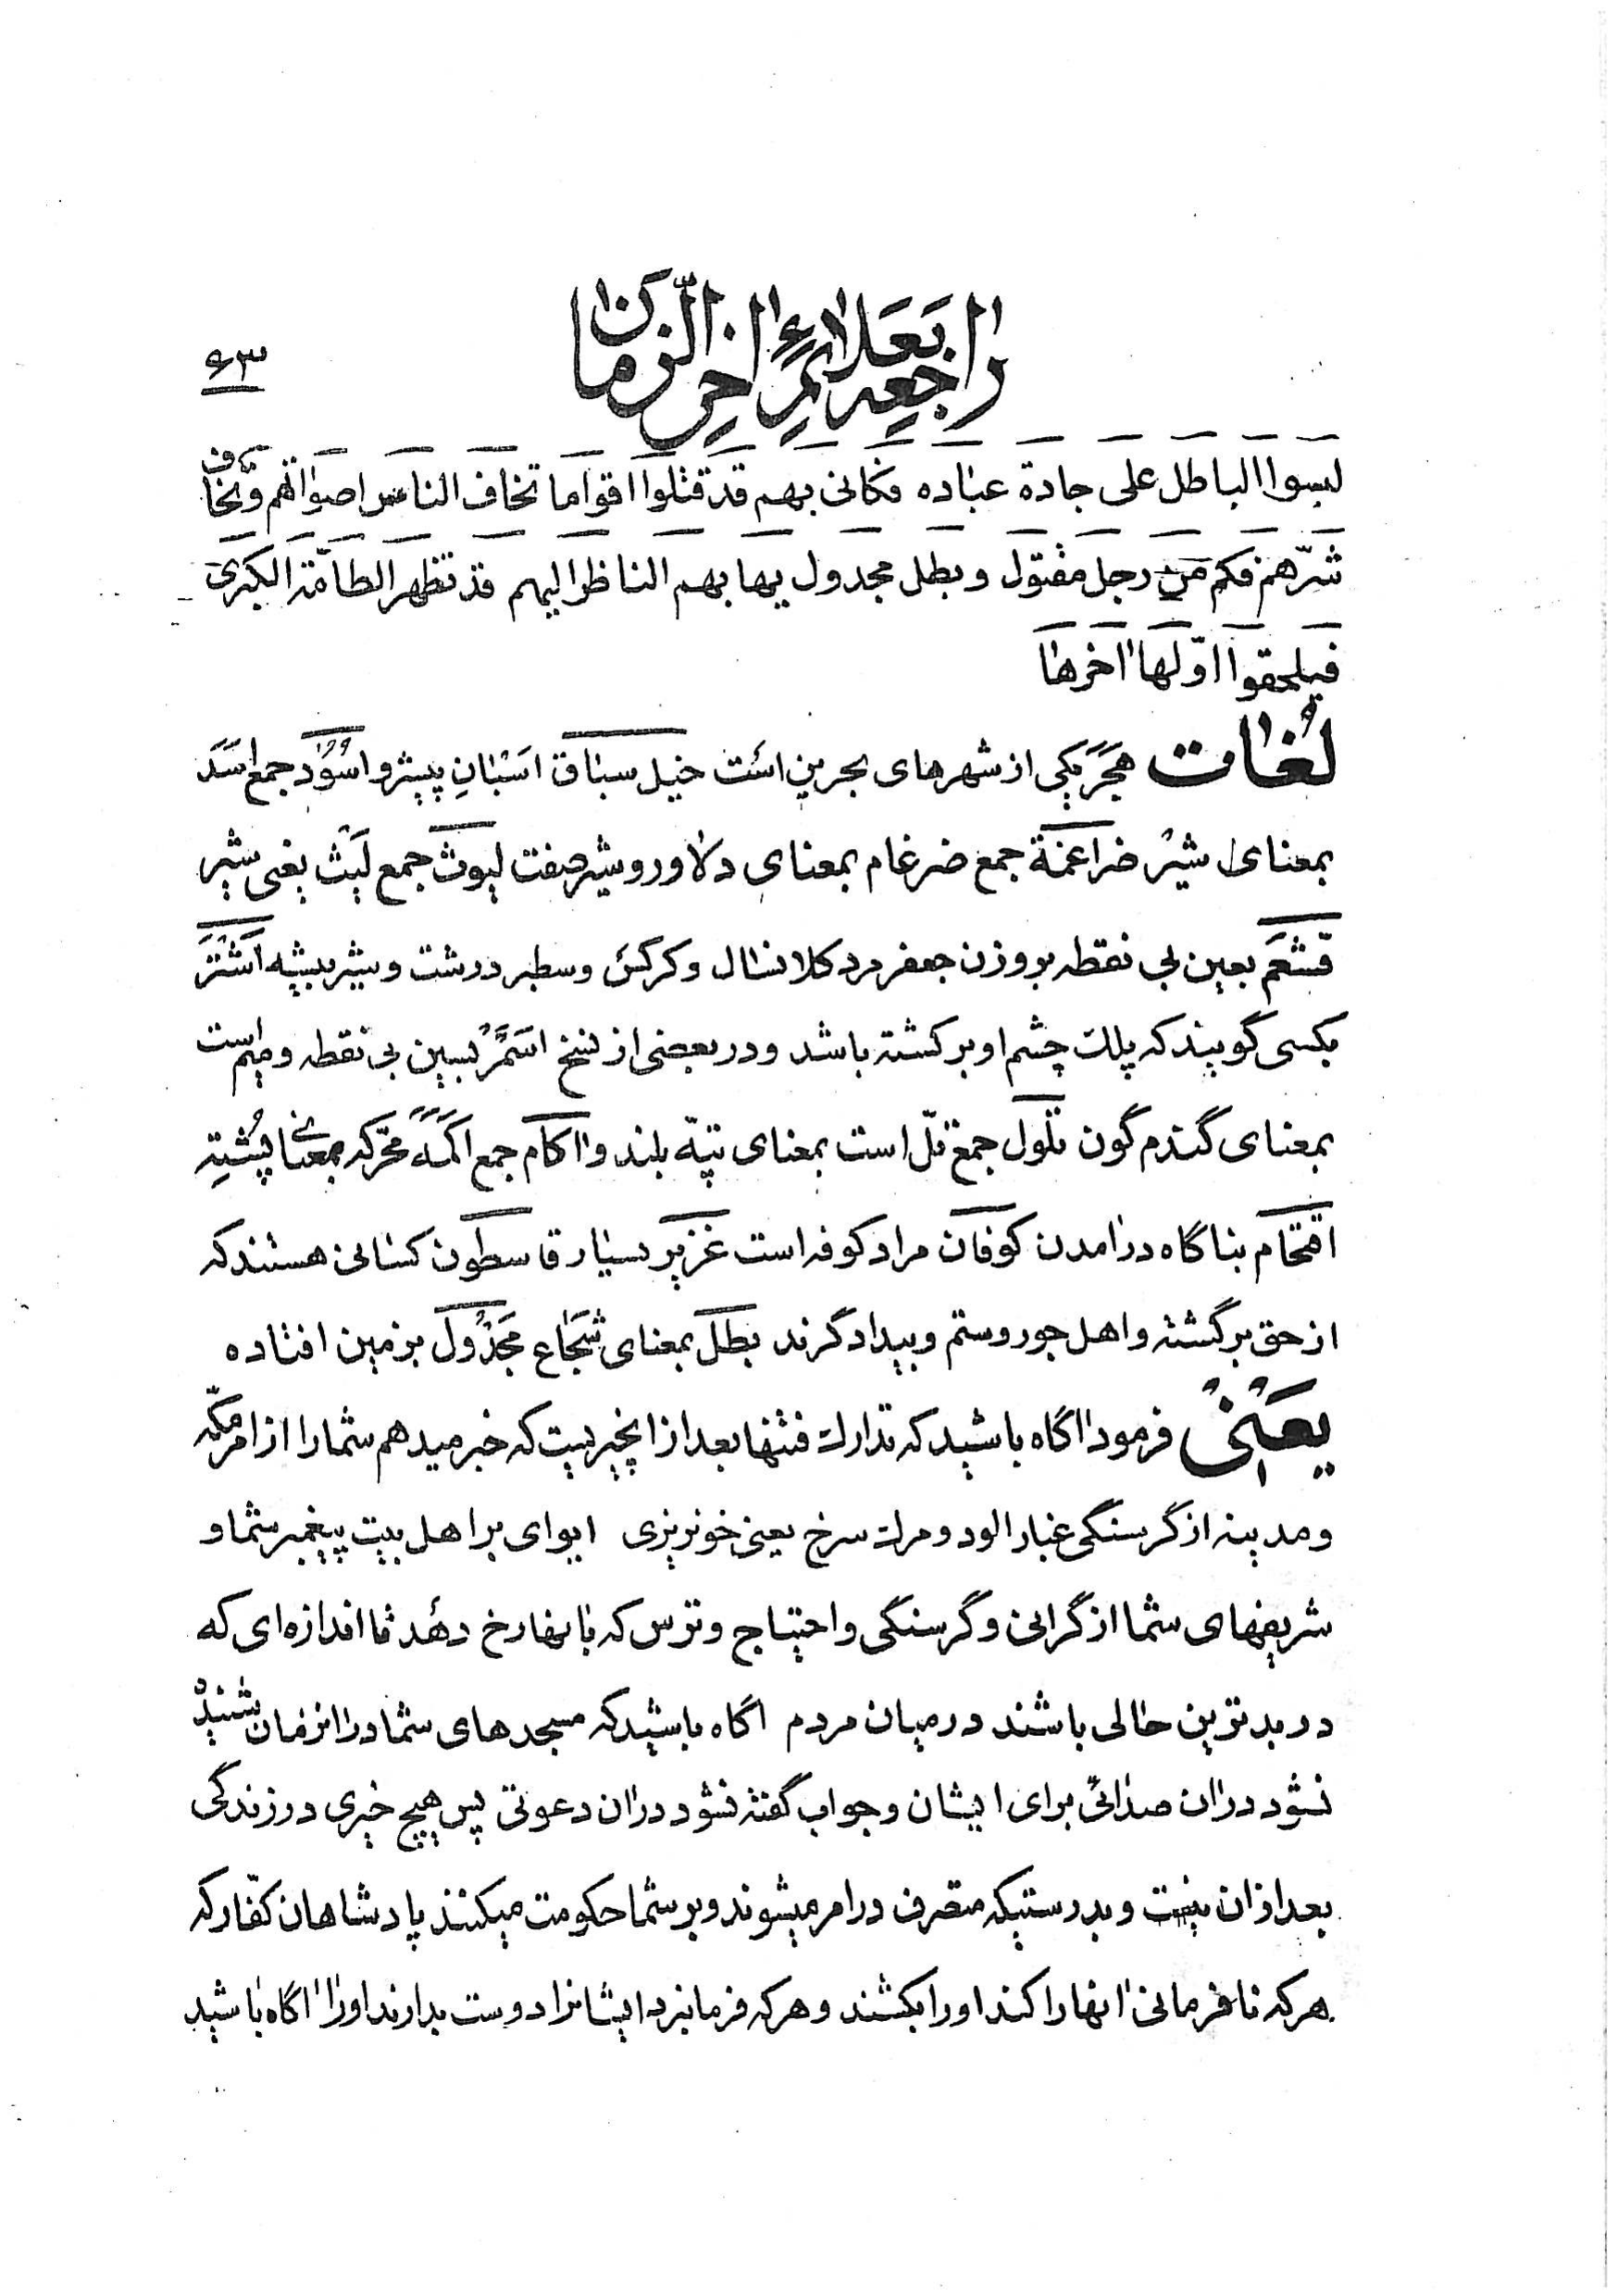 راجعه بعلائم اخر الزمان
۶۳
لبسوا الباطل علی جادة عباده فکانی بهم قد قتلوا اقواما تخاف الناس اصواتهم و تخاف
شرّهم فکم من رجل مقتول و بطل مجدول یهابهم الناظر الیهم قد تظهر الطامّة الکبری
فیلحقوا اوّلها اخرها
لُغات هَجَر یکی از شهرهای بحرین است خیل سباق اسبانِ پیشرو اُسُوُد جمع اَسَد
بمعنای شیر ضراغمة جمع ضرغام بمعنای دلاور و شیر صفت لیوث جمع لَیث یعنی شیر
قَشْعَم بعین بی نقطه بر وزن جعفر مرد کلانسال و کرکس و سطبر درشت و شیر بیشه اَشْتَر
بکسی گویند که پلک چشم او برگشته باشد و در بعضی از نسخ اَسْمَر بسین بی نقطه و میم است
بمعنای گندم گون تلول جمع تلّ است بمعنای تپّه بلند و اکام جمع اَکَمَه محرّکه بمعنای پُشتِه
اقتحام بناگاه درامدن کوفان مراد کوفه است غزیر بسیار قاسطون کسانی هستند که
از حق برگشته و اهل جور و ستم و بیدادگرند بطل بمعنای شجاع مَجْدُول بر زمین افتاده
یَعنی فرمود اگاه باشید که تدارک فتنها بعد از انچیزیست که خبر میدهم شما را از امر مکّه
و مدینه از گرسنگی غبارالود و مرک سرخ یعنی خونریزی ایوای بر اهل بیت پیغمبر شما و
شریفهای شما از گرانی و گرسنگی و احتیاج و ترس که بانها رخ دهد تا اندازه‌ای که
در بدترین حالی باشند در میان مردم اگاه باشید که مسجدهای شما در انزمان شنیده
نشود در ان صدائی برای ایشان و جواب گفته نشود در ان دعوتی پس هیچ خیری در زندگی
بعد از ان نیست و بدرستیکه متصرف در امر میشوند و بر شما حکومت میکنند پادشاهان کفّار که
هر که نافرمانی انها را کند او را بکشند و هر که فرمانبرد ایشانرا دوست بدارند او را اگاه باشید